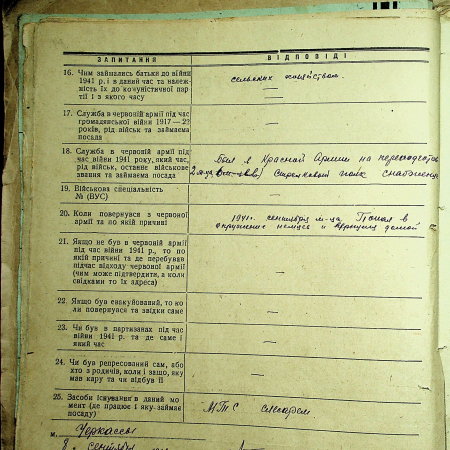 ЗАПИТАННЯ
ВІДПОВІДІ
16. Чим займались батьки до війни
1941 р. і в даний час та належ-
мість їх до комуністичної пар
тії і з якого часу
сельским хозяйством.
17. Служба в червоній армії під час
громадянської війни 1917—22
років, рід військ та займаєма
посада
18. Служба в червоній армії під
час війни 1941 року, який час,
рід військ, останнє військове
звання та займаєма посада
Был в Красной Армии на
Стрелковый полк
19. Військова спеціальність
№ (ВУС)
20. Коли повернувся з червоної
армії та по якій причині
1941г. сентября м-ца Попал в
окружение немцев и вернулся домой
21. Якщо не був в червоній армії
під час війни 1941 р., то по
якій причині та де перебував
підчас відходу червоної армії
(чим може підтвердити, а коли
свідками то їх адреса)
22. Якщо був евакуйований, то ко
ли повернувся та звідки саме
23. Чи був в партизанах під час
війни 1941 р. та де саме і
який час
24. Чи був репресований сам, або
хто з родичів, коли і защо, яку
мав кару та чи відбув її
25. Засоби існування в даний мо
мент (де працює і яку займає
посаду)
МТС слесарем
м. Черкассы
8. сентября